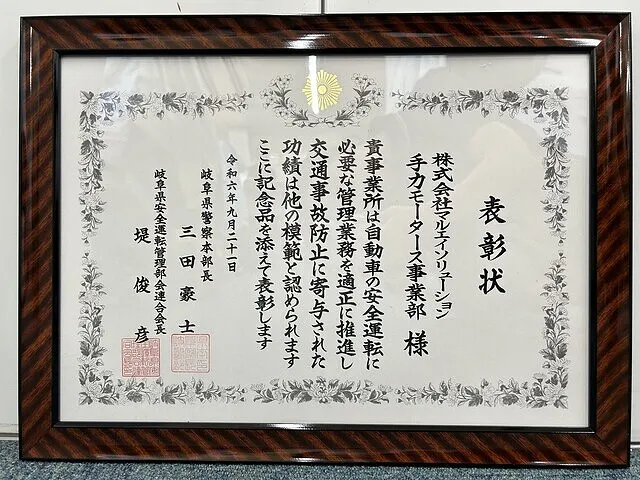 表彰状
株式会社マルエイソリューション
手力モータース事業部 様
貴事業所は自動車の安全運転に
必要な管理業務を適正に推進し
交通事故防止に寄与された
功績は他の模範と認められます
ここに記念品を添えて表彰します
令和六年九月二十一日
岐阜県警察本部長
三田豪士
岐阜県安全運転管理部会連合会長
堤俊彦